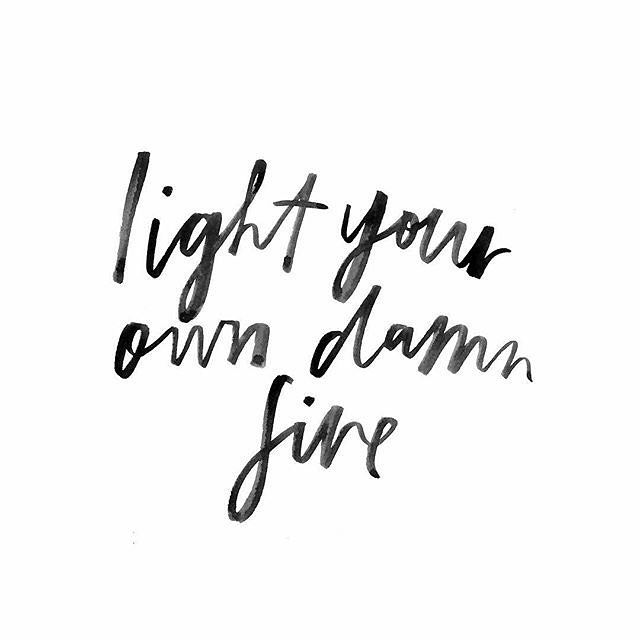 light your
own damn
fire